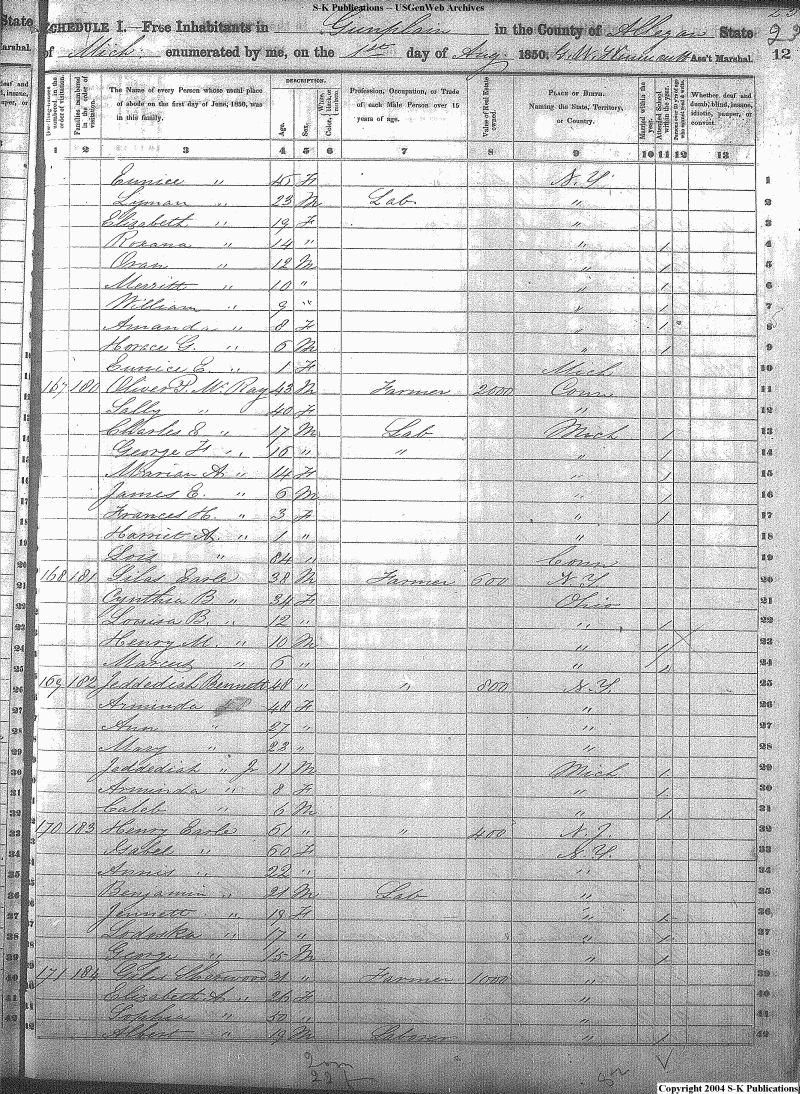 S-K Publications – USGenWeb Archives
SCHEDULE I.—Free Inhabitants in Gunplain in the County of Allegan State
of Mich enumerated by me, on the 1st day of Aug 1850. Ass't Marshal. 12
DESCRIPTION.
The Name of every Person whose usual place of abode on the first day of June, 1850, was in this family.
Age.
Sex.
Profession, Occupation, or Trade of each Male Person over 15 years of age.
Value of Real Estate owned.
PLACE OF BIRTH. Naming the State, Territory, or Country.
Married within the year.
Attended School within the year.
Whether deaf and dumb, blind, insane, idiotic, pauper, or convict.
1 2 3 4 5 6 7 8 9 10 11 12 13
Eunice " 45 F N.Y. 1
Lyman " 23 M Lab " 2
Elizabeth " 19 F " 3
Roxana " 14 " " 1 4
Oran " 12 M " 1 5
Merritt " 10 " " 1 6
William " 9 " " 1 7
Amanda " 8 F " 1 8
Horace G. " 6 M " 1 9
Eunice E. " 1 F Mich 10
167 180 Oliver P. McRay 43 M Farmer 2000 Conn 11
Sally " 40 F " 12
Charles E " 17 M Lab Mich 1 13
George F " 16 " " " 1 14
Marian A. " 14 F " 1 15
James E. " 6 M " 1 16
Frances H. " 3 F " 1 17
Harriet A. " 1 " " 18
Lois " 84 " Conn 19
168 181 Silas Earle 38 M Farmer 600 N.Y. 20
Cynthia B " 34 F Ohio 21
Louisa B. " 12 " " 1 22
Henry M. " 10 M " 1 23
Marcus " 6 " " 1 24
169 182 Jeddediah Bennett 48 " " 800 N.Y. 25
Arminda 48 F " 26
Ann " 27 " " 27
Mary " 22 " " 28
Jeddediah " Jr 11 M Mich 1 29
Arminda " 8 F " 1 30
Caleb " 6 M " 1 31
170 183 Henry Earle 61 " " 400 N.J. 32
Isabel " 60 F N.Y. 33
Annis " 22 " " 34
Benjamin " 21 M Lab " 35
Jennett " 19 F " 1 36
Lodoska " 17 " " 1 37
George " 15 M " 1 38
171 184 Giles Sherwood 31 " Farmer 1000 " 39
Elizabeth A " 26 F " 40
Sophia " 50 " " 41
Albert " 19 M Labrer " 1 42
20m
22f
Copyright 2004 S-K Publications